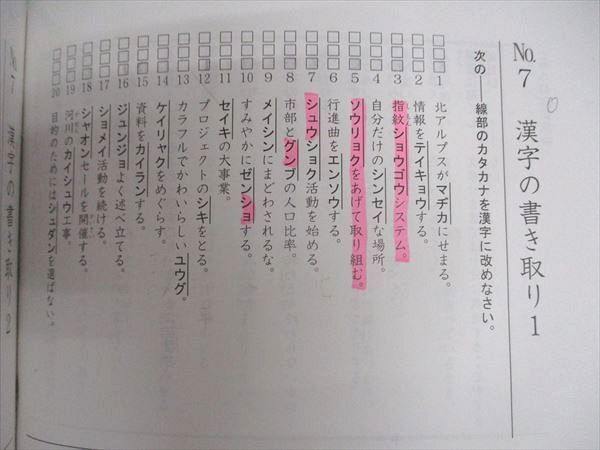 No.7 漢字の書き取り1
次の──線部のカタカナを漢字に改めなさい。
1 北アルプスがマヂカにせまる。
2 情報をテイキョウする。
3 指紋ショウゴウシステム。
4 自分だけのシンセイな場所。
5 ソウリョクをあげて取り組む。
6 行進曲をエンソウする。
7 シュウショク活動を始める。
8 市部とグンブの人口比率。
9 メイシンにまどわされるな。
10 すみやかにゼンショする。
11 セイキの大事業。
12 プロジェクトのシキをとる。
13 カラフルでかわいらしいユウグ。
14 ケイリャクをめぐらす。
15 資料をカイランする。
16 ジュンジョよく述べ立てる。
17 ショメイ活動を続ける。
18 シャオンセールを開催する。
19 河川のカイシュウ工事。
20 目的のためにはシュダンを選ばない。
No.7 漢字の書き取り2